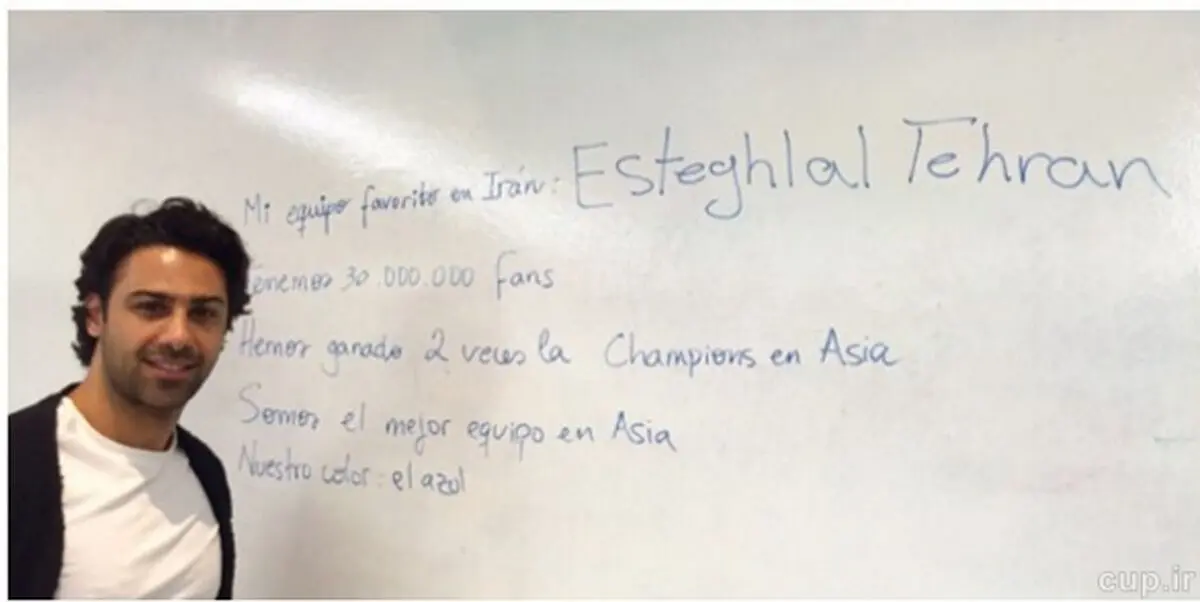 Mi equipo favorito en Irán: Esteghlal Tehran
Tenemos 30.000.000 fans
Hemos ganado 2 veces la Champions en Asia
Somos el mejor equipo en Asia
Nuestro color: el azul
cup.ir